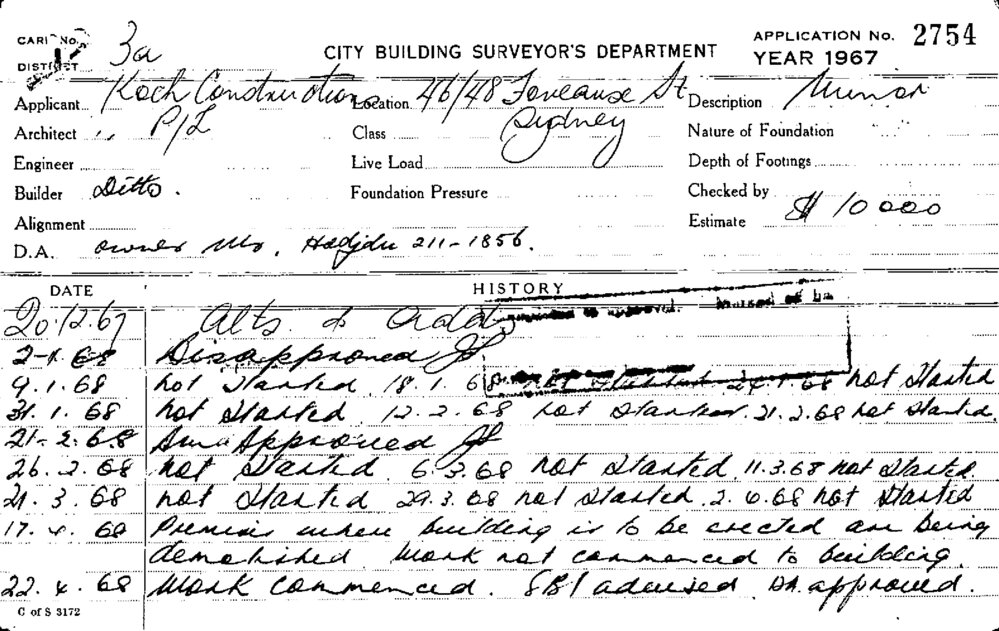 CARD No. 3a CITY BUILDING SURVEYOR'S DEPARTMENT APPLICATION No. 2754
DISTRICT YEAR 1967
Applicant Koch Constructions Location 46/48 Foveaux St Description Minor
Architect " P/L Class Sydney Nature of Foundation
Engineer Live Load Depth of Footings
Builder Ditto. Foundation Pressure Checked by
Alignment Estimate $ 10 000
D.A. owner Mr. Hadjdu 211-1856.
DATE HISTORY
20.12.67 Alts & Adds
2-1-68 Disapproved
9.1.68 not Started 18.1.68 not Started 24.1.68 not Started
31.1.68 not Started 12.2.68 not Started. 21.2.68 not Started
21-2.68 Approved
26.2.68 not Started 6.3.68 not Started. 11.3.68 not Started
21.3.68 not Started 29.3.68 not Started. 2.4.68 not Started
17.4.68 Premises where building is to be erected are being
demolished. Work not commenced to building.
22.4.68 Work commenced. SBI advised DA approved.
C of S 3172